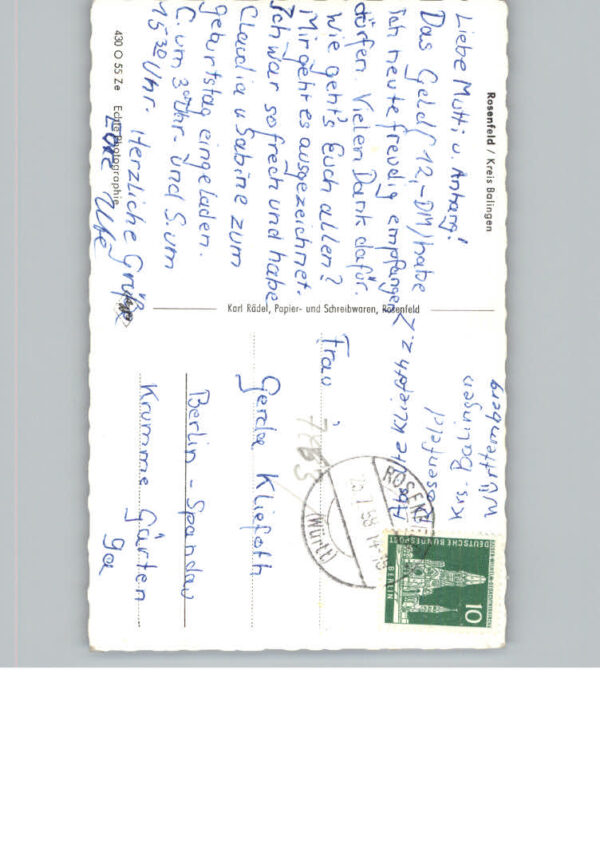 Rosenfeld / Kreis Balingen
Liebe Mutti u. Anhang!
Das Geld (12,-DM) habe
ich heute freudig empfangen
dürfen. Vielen Dank dafür.
Wie geht's Euch allen?
Mir geht es ausgezeichnet.
Ich war so frech und habe
Claudia u Sabine zum
Geburtstag eingeladen.
C. um 3 00 Uhr - und S. um
15 30 Uhr. Herzliche Grüße
Eure Ute
430 O 55 Ze Echte Photographie
Karl Rädel, Papier- und Schreibwaren, Rosenfeld
Kliefoth z. Z.
Rosenfeld
Krs. Balingen
Württemberg
Frau
Gerda Kliefoth
Berlin - Spandau
Krumme Gärten
9a
ROSENFELD
(Württ)
DEUTSCHE BUNDESPOST
BERLIN
10